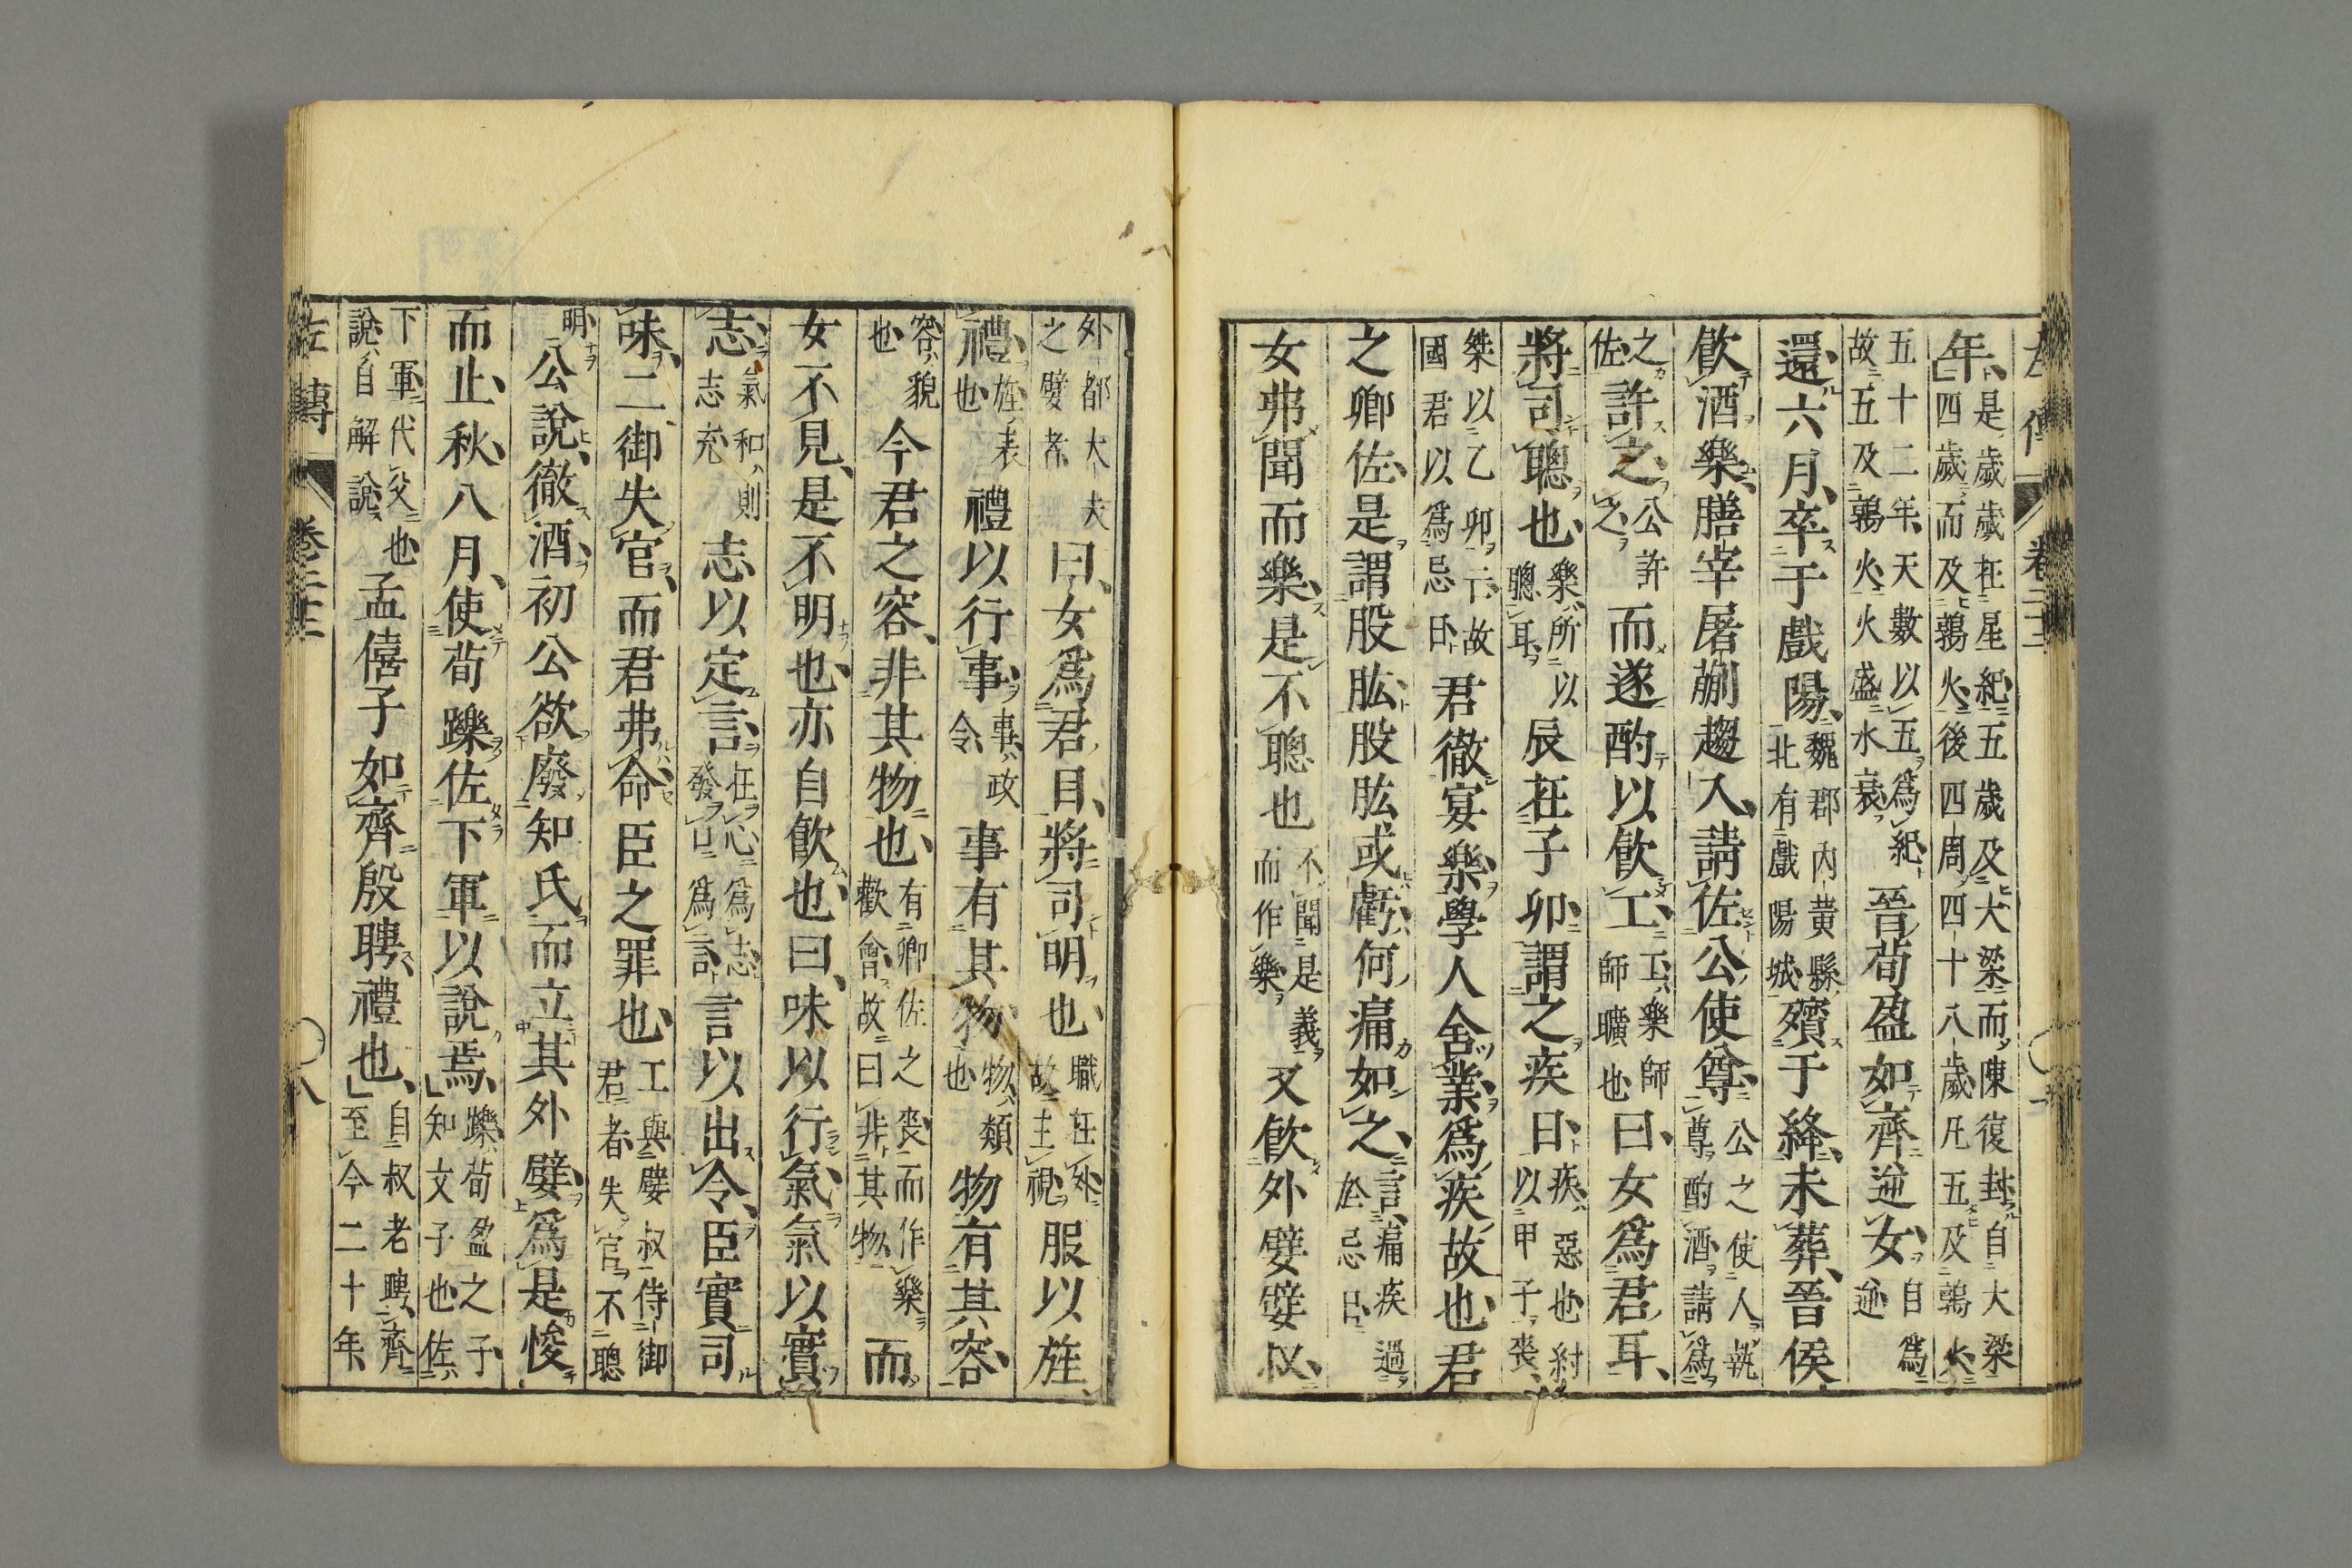 左傳 卷二十二
年、是歲歲在星紀、五歲及大梁、而陳復封、自大梁四歲、而及鶉火、後四周、四十八歲、凡五及鶉火、
五十二年、天數以五爲紀、故五及鶉火、火盛水衰、晉荀盈如齊逆女、自爲逆
還、六月、卒于戲陽、魏郡內黄縣、北有戲陽城、殯于絳、未葬、晉侯
飮酒樂、膳宰屠蒯趨入、請佐公使尊、公之使人執尊酌酒請爲
之佐、許之、公許之、而遂酌以飮工、工、樂師師曠也曰、女爲君耳、
將司聰也、樂、所以聰耳、辰在子卯、謂之疾日、疾、惡也、紂以甲子喪、
桀以乙卯亡、故國君以爲忌日、君徹宴樂、學人舍業、爲疾故也、君
之卿佐、是謂股肱、股肱或虧、何痛如之、言痛疾過於忌日、
女弗聞而樂、是不聰也不聞是義而作樂、又飮外嬖嬖叔、
外都大夫之嬖者、曰、女爲君目、將司明也、職在外、故主視、服以旌
禮、旌、表也、禮以行事、事、政令事有其物、物、類也物有其容、
容、貌也今君之容、非其物也、有卿佐之喪、而作樂歡會、故曰非其物、而
女不見、是不明也、亦自飮也、曰、味以行氣、氣以實
志、氣和、則志充志以定言、在心爲志、發口爲言、言以出令、臣實司
味、二御失官、而君弗命、臣之罪也、工與嬖叔侍御君者、失官不聰
明、公說、徹酒、初公欲廢知氏、而立其外嬖、爲是悛
而止、秋、八月、使荀躒佐下軍、以說焉、躒、荀盈之子、知文子也、佐
下軍、代父也、說、自解說、孟僖子如齊殷聘、禮也、自叔老聘齊、至今二十年、
左傳 卷二十二 八